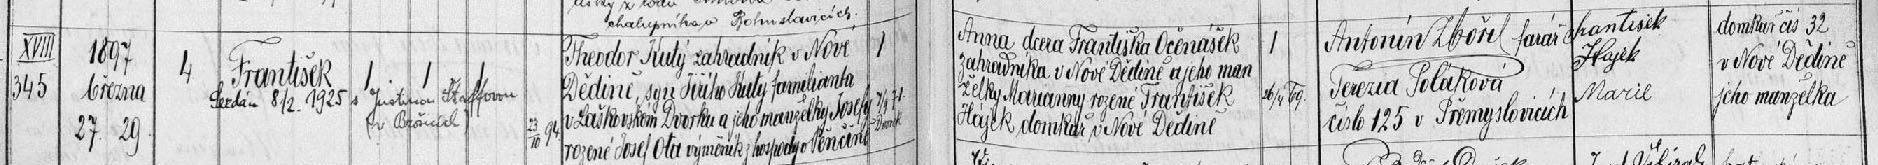 chalupníka v Bohuslavicích.
XVIII
345
1897
března
27. 29.
4
František
1 1 1
8/2. 1925 s Justinou
23/10 94
Theodor Kutý zahradník v Nové
Dědině, syn Jiřího Kutý familianta
v Laškovském Dvorku a jeho manželky Josefy
rozené Josef Ota výměnkář hospody v Věnčeně
1
Anna dcera Františka Očenášek
zahradníka v Nové Dědině a jeho man
želky Marianny rozené František
Hájek domkař v Nové Dědině
1
Antonín Zbořil farář
Terezia Poláková
číslo 125 v Přemyslovicích
František
Hájek
Marie
domkař čís 32
v Nové Dědině
jeho manželka